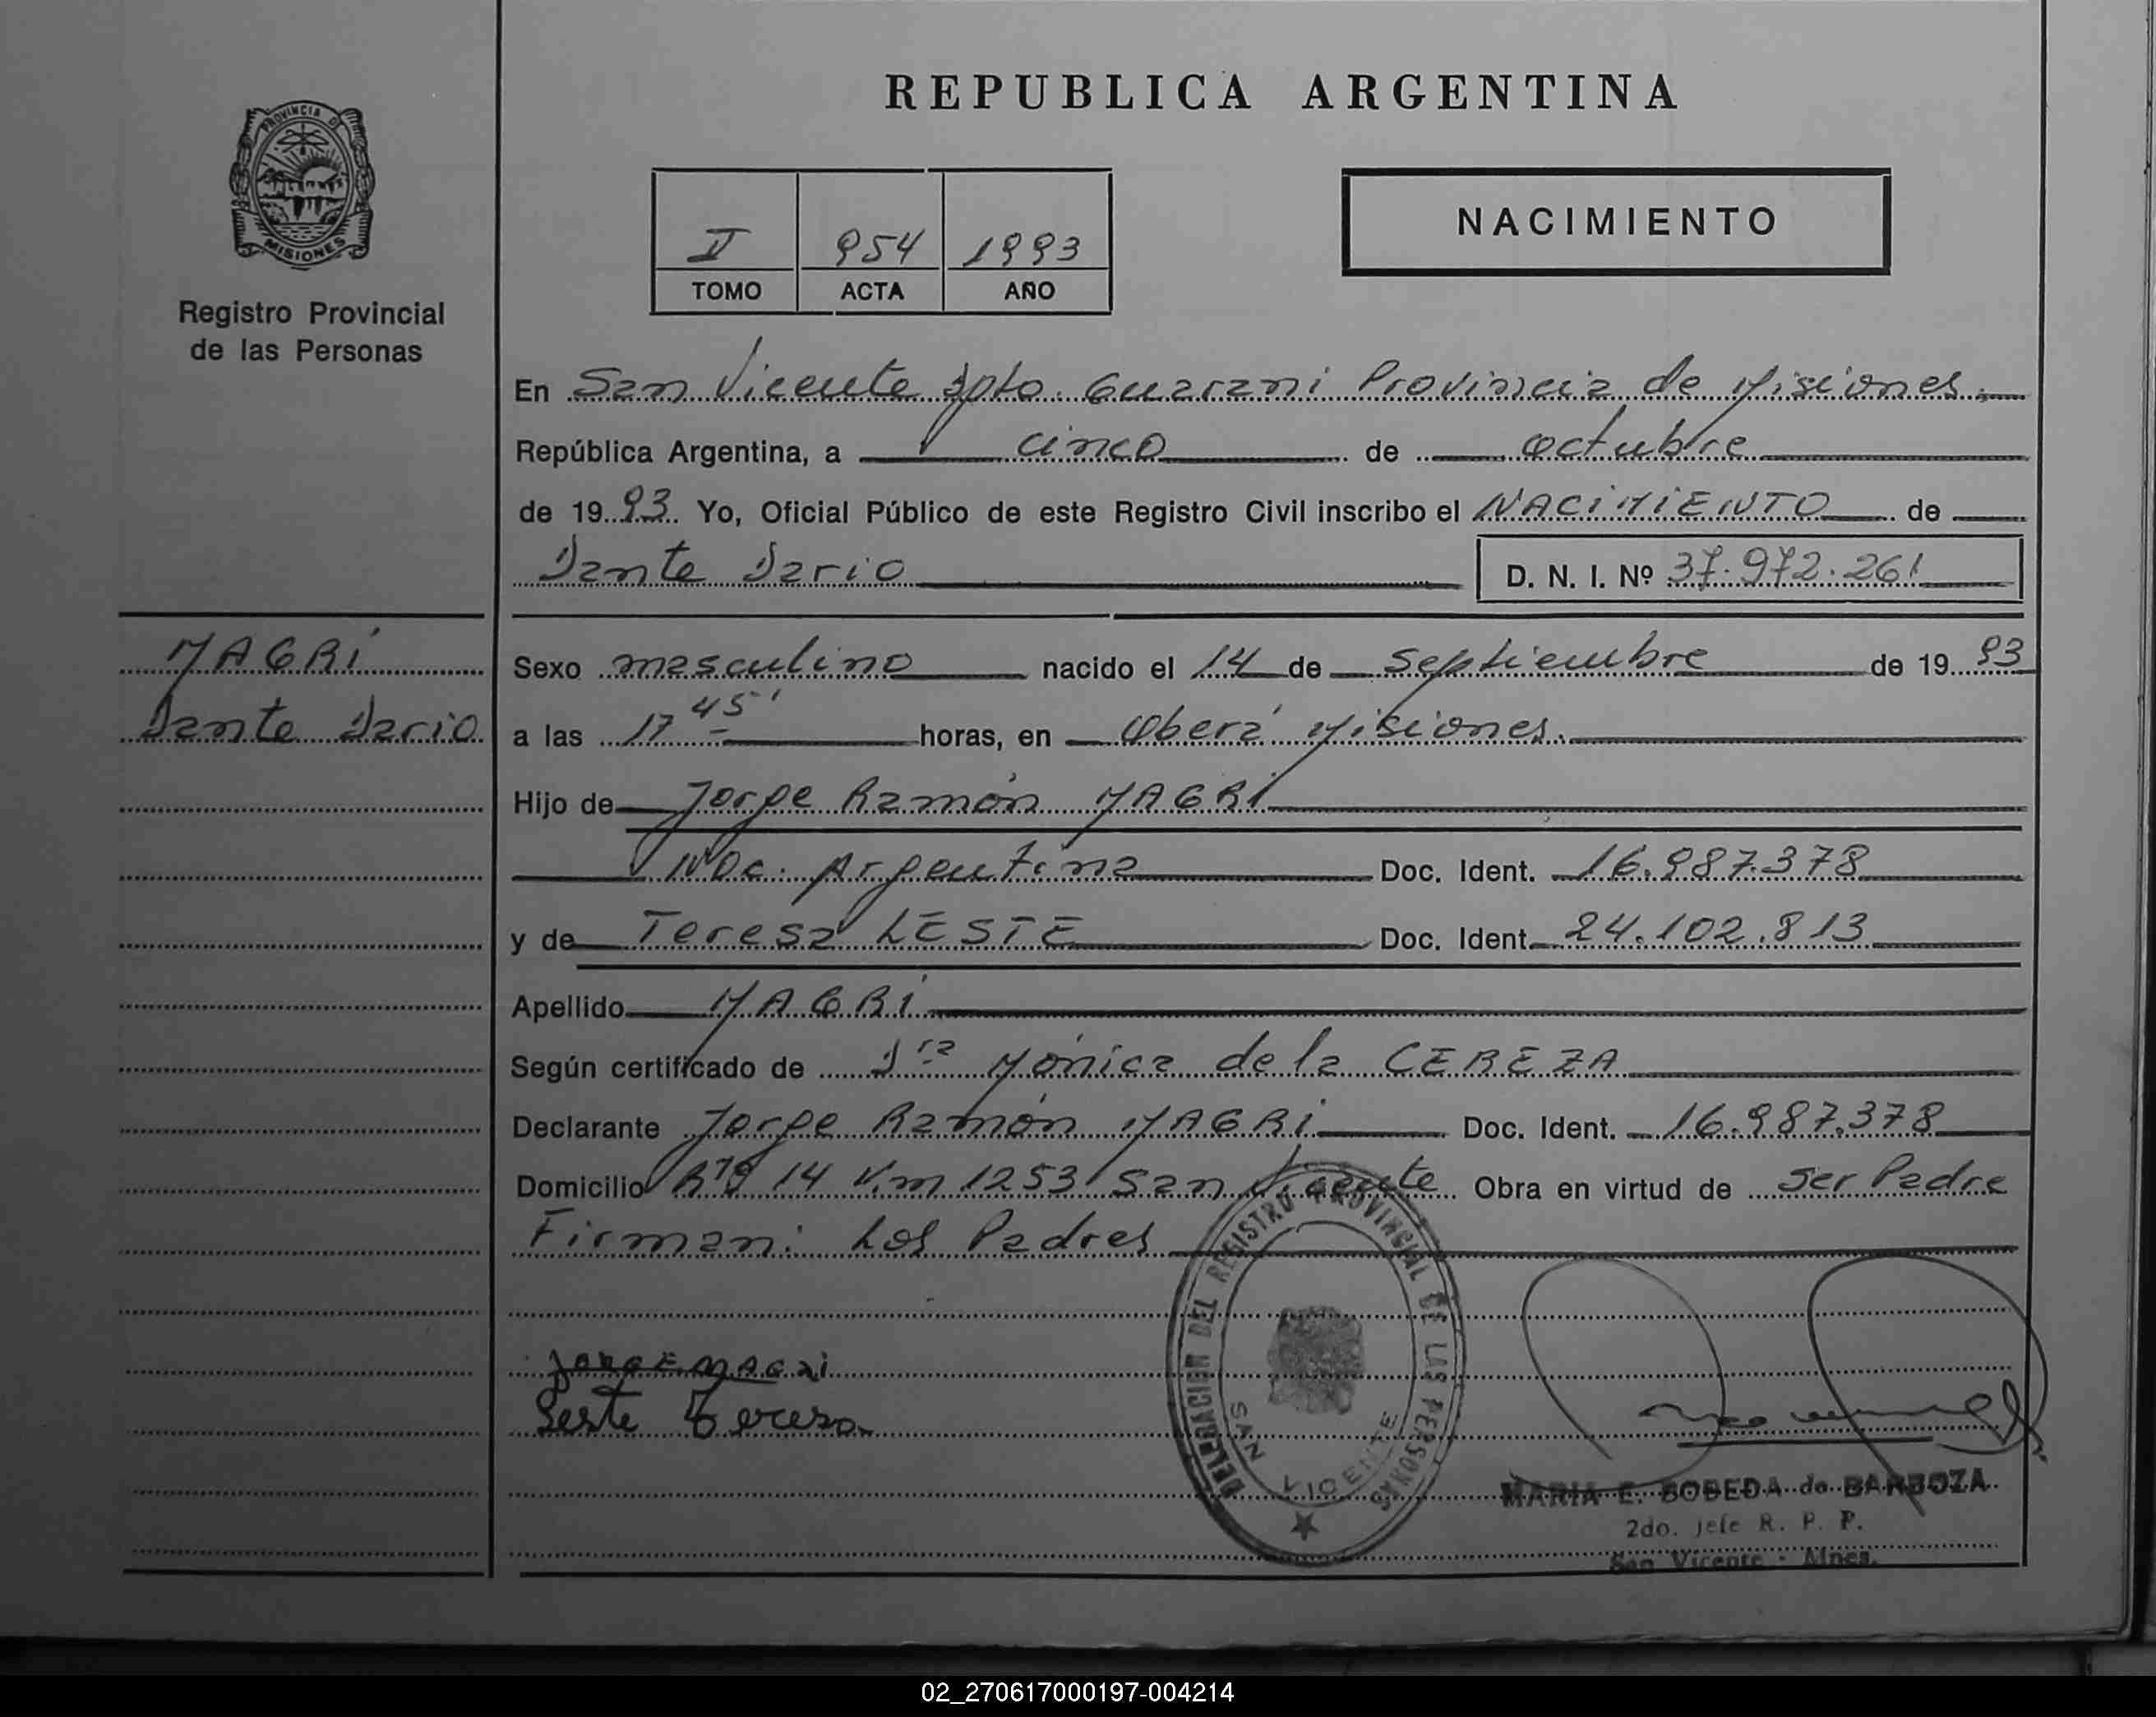 REPUBLICA ARGENTINA
PROVINCIA DE
MISIONES
Registro Provincial
de las Personas
II 954 1993
TOMO ACTA AÑO
NACIMIENTO
En San Vicente Dpto. Guaraní Provincia de Misiones.
República Argentina, a cinco de octubre
de 1993. Yo, Oficial Público de este Registro Civil inscribo el NACIMIENTO de
Dante Dario D. N. I. Nº 37.972.261
MAGRI
Dante Dario
Sexo masculino nacido el 14 de septiembre de 1993
a las 17 45' horas, en Oberá Misiones.
Hijo de Jorge Ramón MAGRI
Nac. Argentina Doc. Ident. 16.987.378
y de Teresa LESTE Doc. Ident. 24.102.813
Apellido MAGRI
Según certificado de Dra Mónica de la CEREZA
Declarante Jorge Ramón MAGRI Doc. Ident. 16.987.378
Domicilio Rta 14 Km 1253 San Vicente Obra en virtud de ser Padre
Firman: Los Padres
JORGE MAGRI
Leste Teresa
DELEGACION DEL REGISTRO PROVINCIAL DE LAS PERSONAS
SAN VICENTE
MARIA E. BOBEDA de BARBOZA
2do. Jefe R. P. P.
San Vicente - Mnes.
02_270617000197-004214